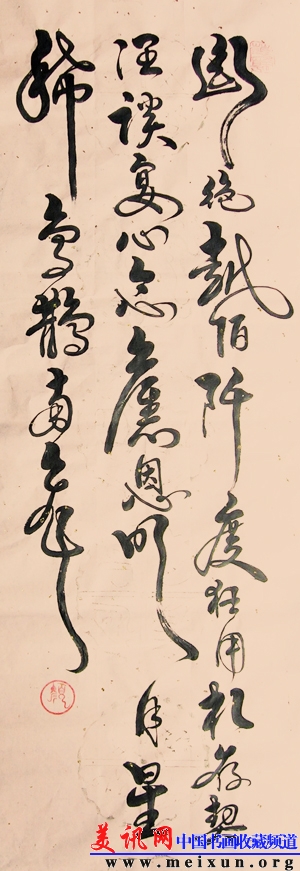 斷絕越陌阡度枉用相存契
濶談宴心念舊恩明月星
稀烏鵲南飛
美讯网 中国书画收藏频道
www.meixun.org